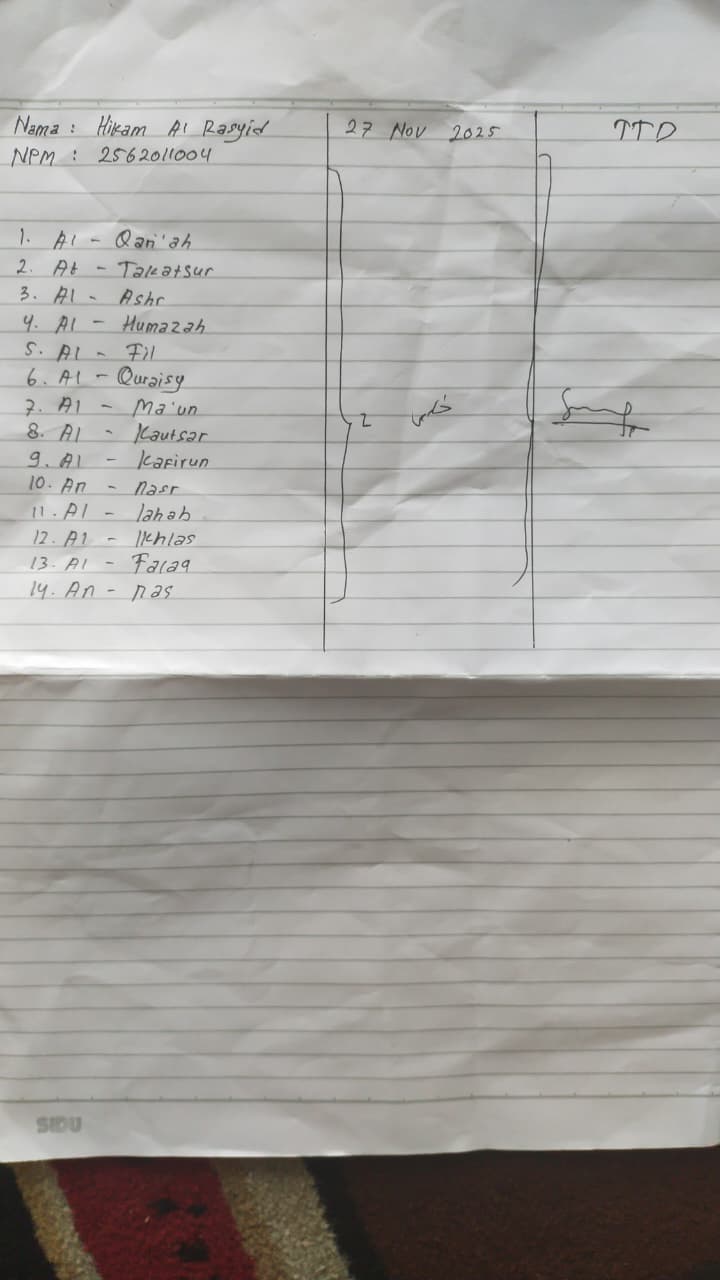 Nama : Hikam Al Rasyid
27 Nov 2025
TTD
NPM : 2562011004
1. Al - Qari'ah
2. At - Takatsur
3. Al - Ashr
4. Al - Humazah
5. Al - Fil
6. Al - Quraisy
7. Al - Ma'un
8. Al - Kautsar
9. Al - Kafirun
10. An - nasr
11. Al - lahab
12. Al - Ikhlas
13. Al - Falaq
14. An - nas
SIDU